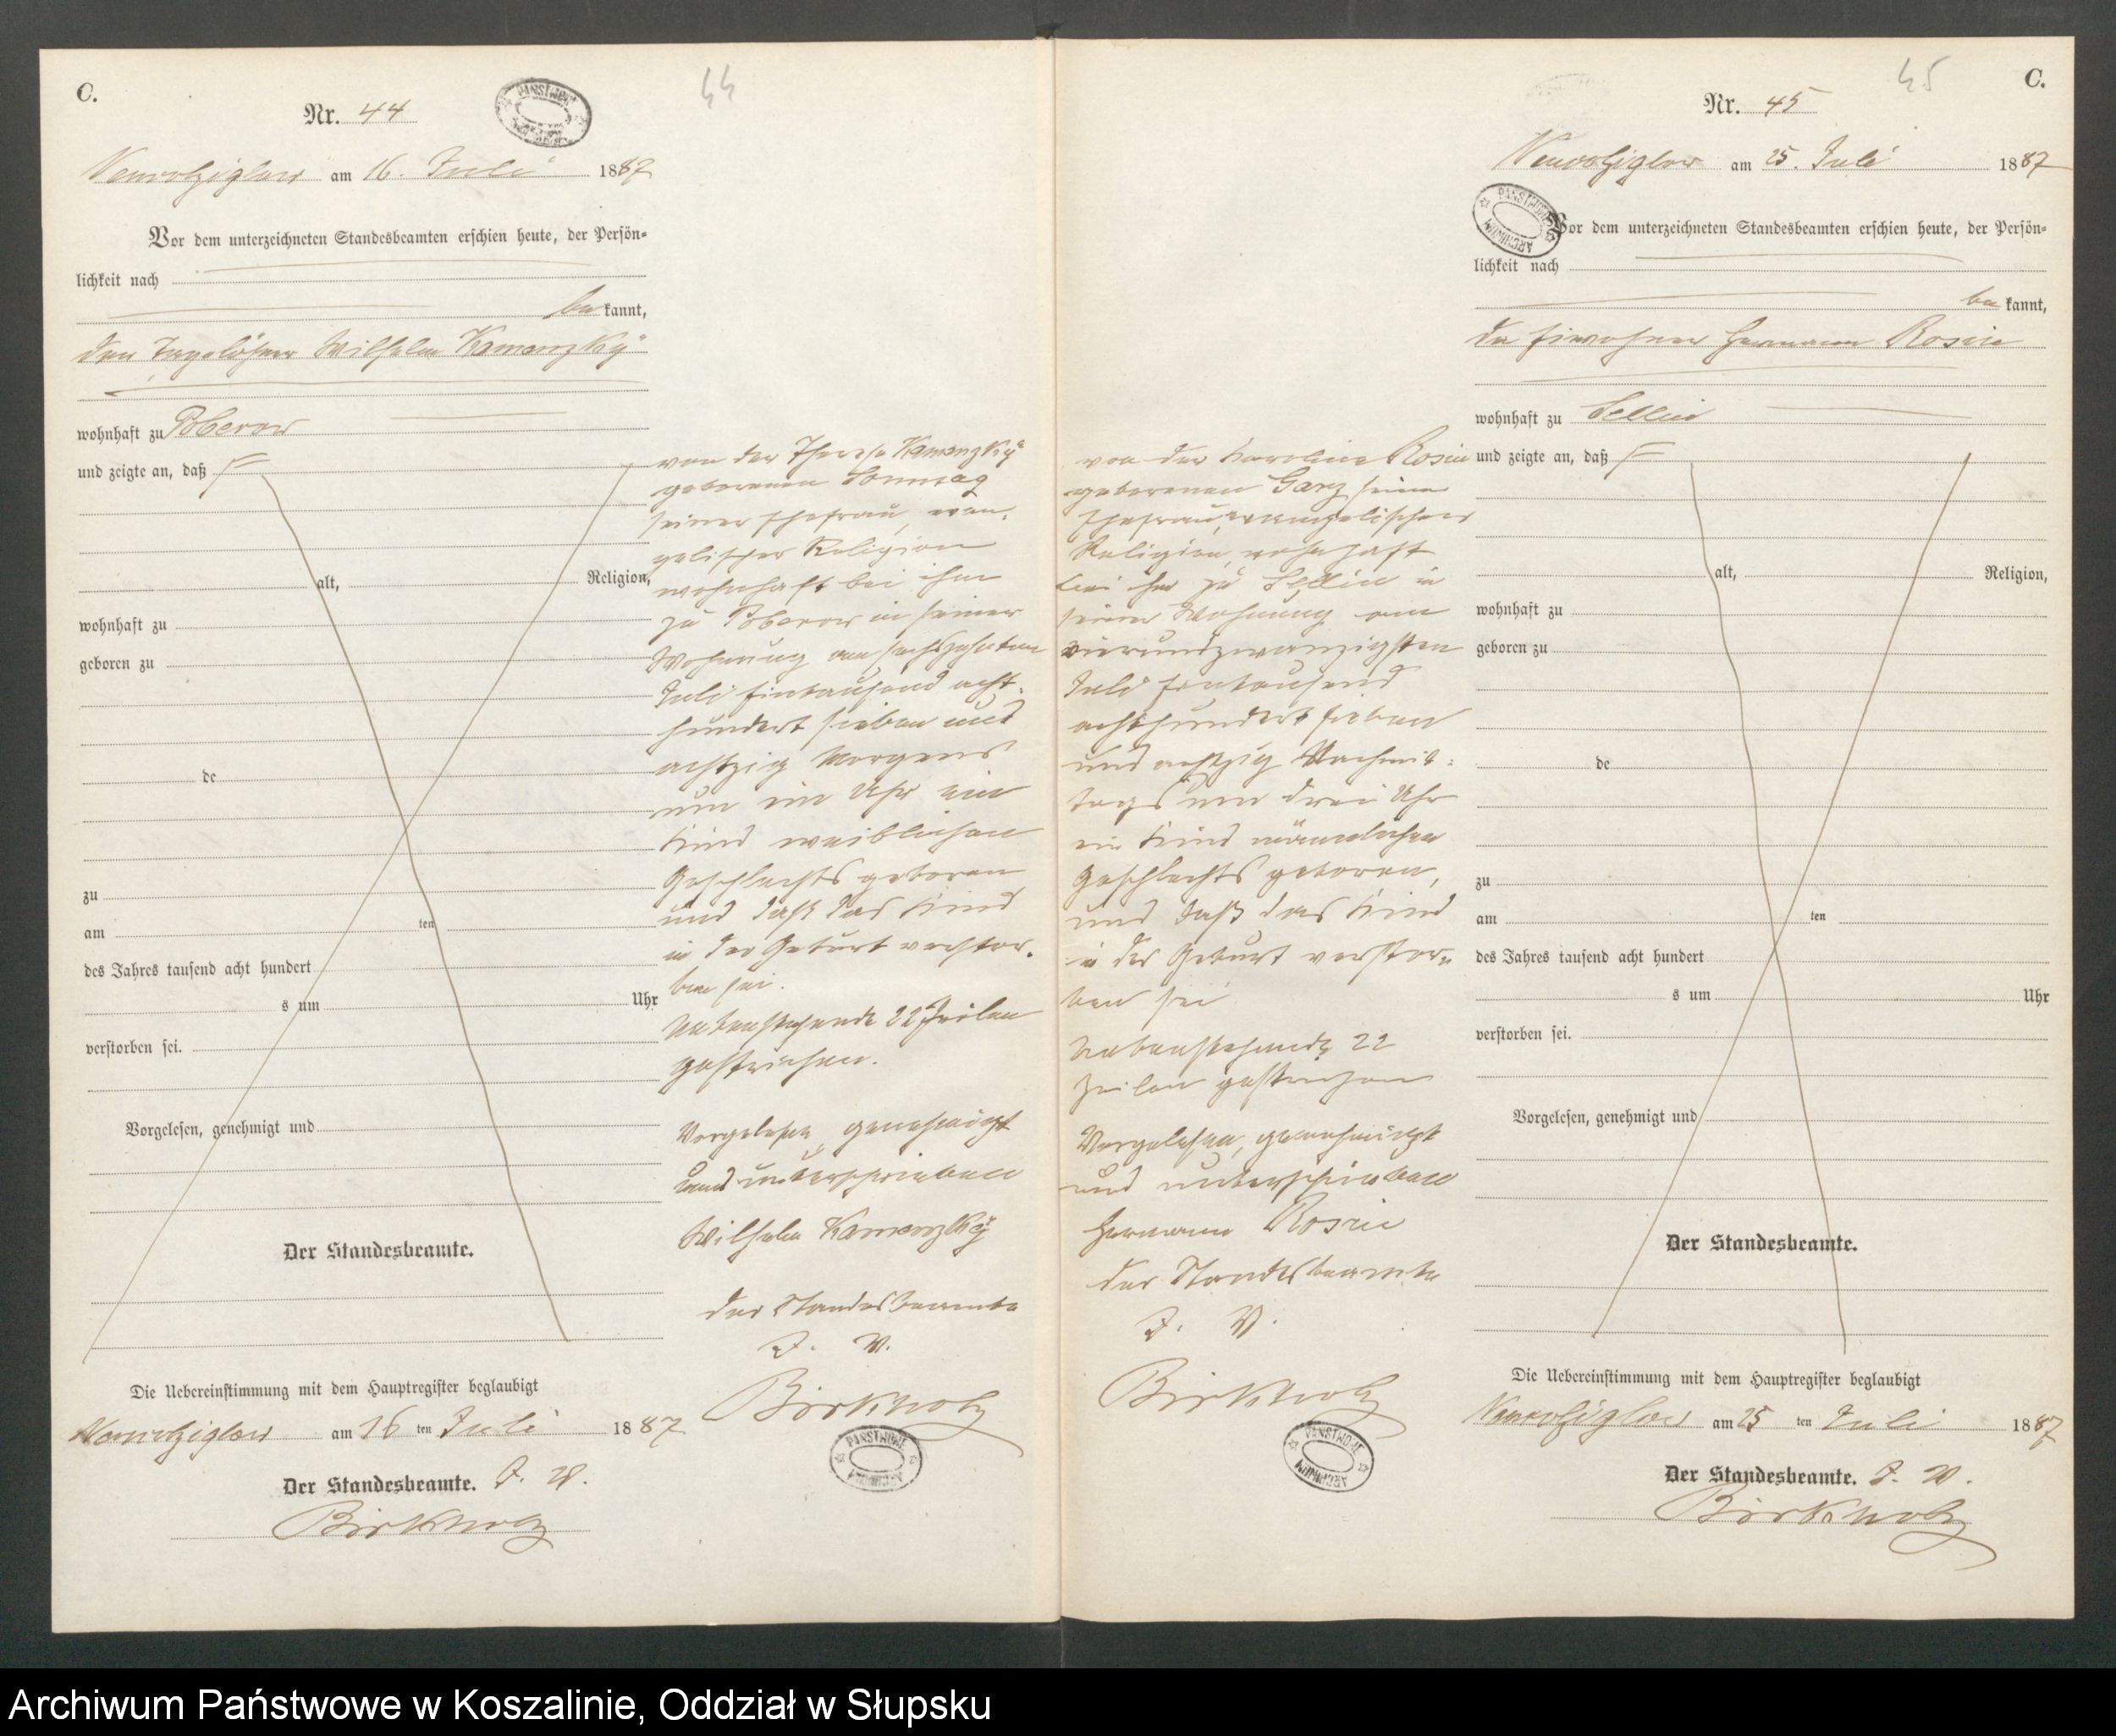 C.
Nr. 44
44
PANSTWOWE
am 16. Juli 1887
Vor dem unterzeichneten Standesbeamten erschien heute, der Persön-
lichkeit nach
be kannt,
den Tagelöhner Wilhelm Kamenzky
wohnhaft zu Poberow
und zeigte an, daß
alt, Religion,
wohnhaft zu
geboren zu
de
zu
am ten
des Jahres tausend acht hundert
s um Uhr
verstorben sei.
Vorgelesen, genehmigt und
Der Standesbeamte.
von der Therese Kamenzky
geborenen Sonntag
seiner Ehefrau, evan-
gelischer Religion
wohnhaft bei ihm
zu Poberow in seiner
Wohnung am sechszehnten
Juli Eintausend acht-
hundert sieben und
achtzig Morgens
um ein Uhr ein
Kind weiblichen
Geschlechts geboren
und daß das Kind
in der Geburt verstor-
ben sei.
Nebenstehende 22 Zeilen
gestrichen.
Vorgelesen, genehmigt
und unterschrieben
Wilhelm Kamenzky
Der Standesbeamte
J. V.
Birkholz
PANSTWOWE ARCHIWUM
Die Uebereinstimmung mit dem Hauptregister beglaubigt
am 16 ten Juli 1887
Der Standesbeamte. J. V.
Birkholz
45
C.
Nr. 45
am 25. Juli 1887
PANSTWOWE ARCHIWUM
Vor dem unterzeichneten Standesbeamten erschien heute, der Persön-
lichkeit nach
be kannt,
der Einwohner Hermann Rosin
wohnhaft zu Sellin
und zeigte an, daß
alt, Religion,
wohnhaft zu
geboren zu
de
zu
am ten
des Jahres tausend acht hundert
s um Uhr
verstorben sei.
Vorgelesen, genehmigt und
Der Standesbeamte.
von der Karoline Rosin
geborenen Garz seiner
Ehefrau, evangelischer
Religion, wohnhaft
bei ihm zu Sellin in
seiner Wohnung am
vierundzwanzigsten
Juli Eintausend
achthundert sieben
und achtzig Nachmit-
tags um drei Uhr
ein Kind männlichen
Geschlechts geboren,
und daß das Kind
in der Geburt verstor-
ben sei
Nebenstehende 22
Zeilen gestrichen
Vorgelesen, genehmigt
und unterschrieben
Hermann Rosin
Der Standesbeamte
J. V.
Birkholz
PANSTWOWE ARCHIWUM
Die Uebereinstimmung mit dem Hauptregister beglaubigt
am 25 ten Juli 1887
Der Standesbeamte. J. V.
Birkholz
Archiwum Państwowe w Koszalinie, Oddział w Słupsku